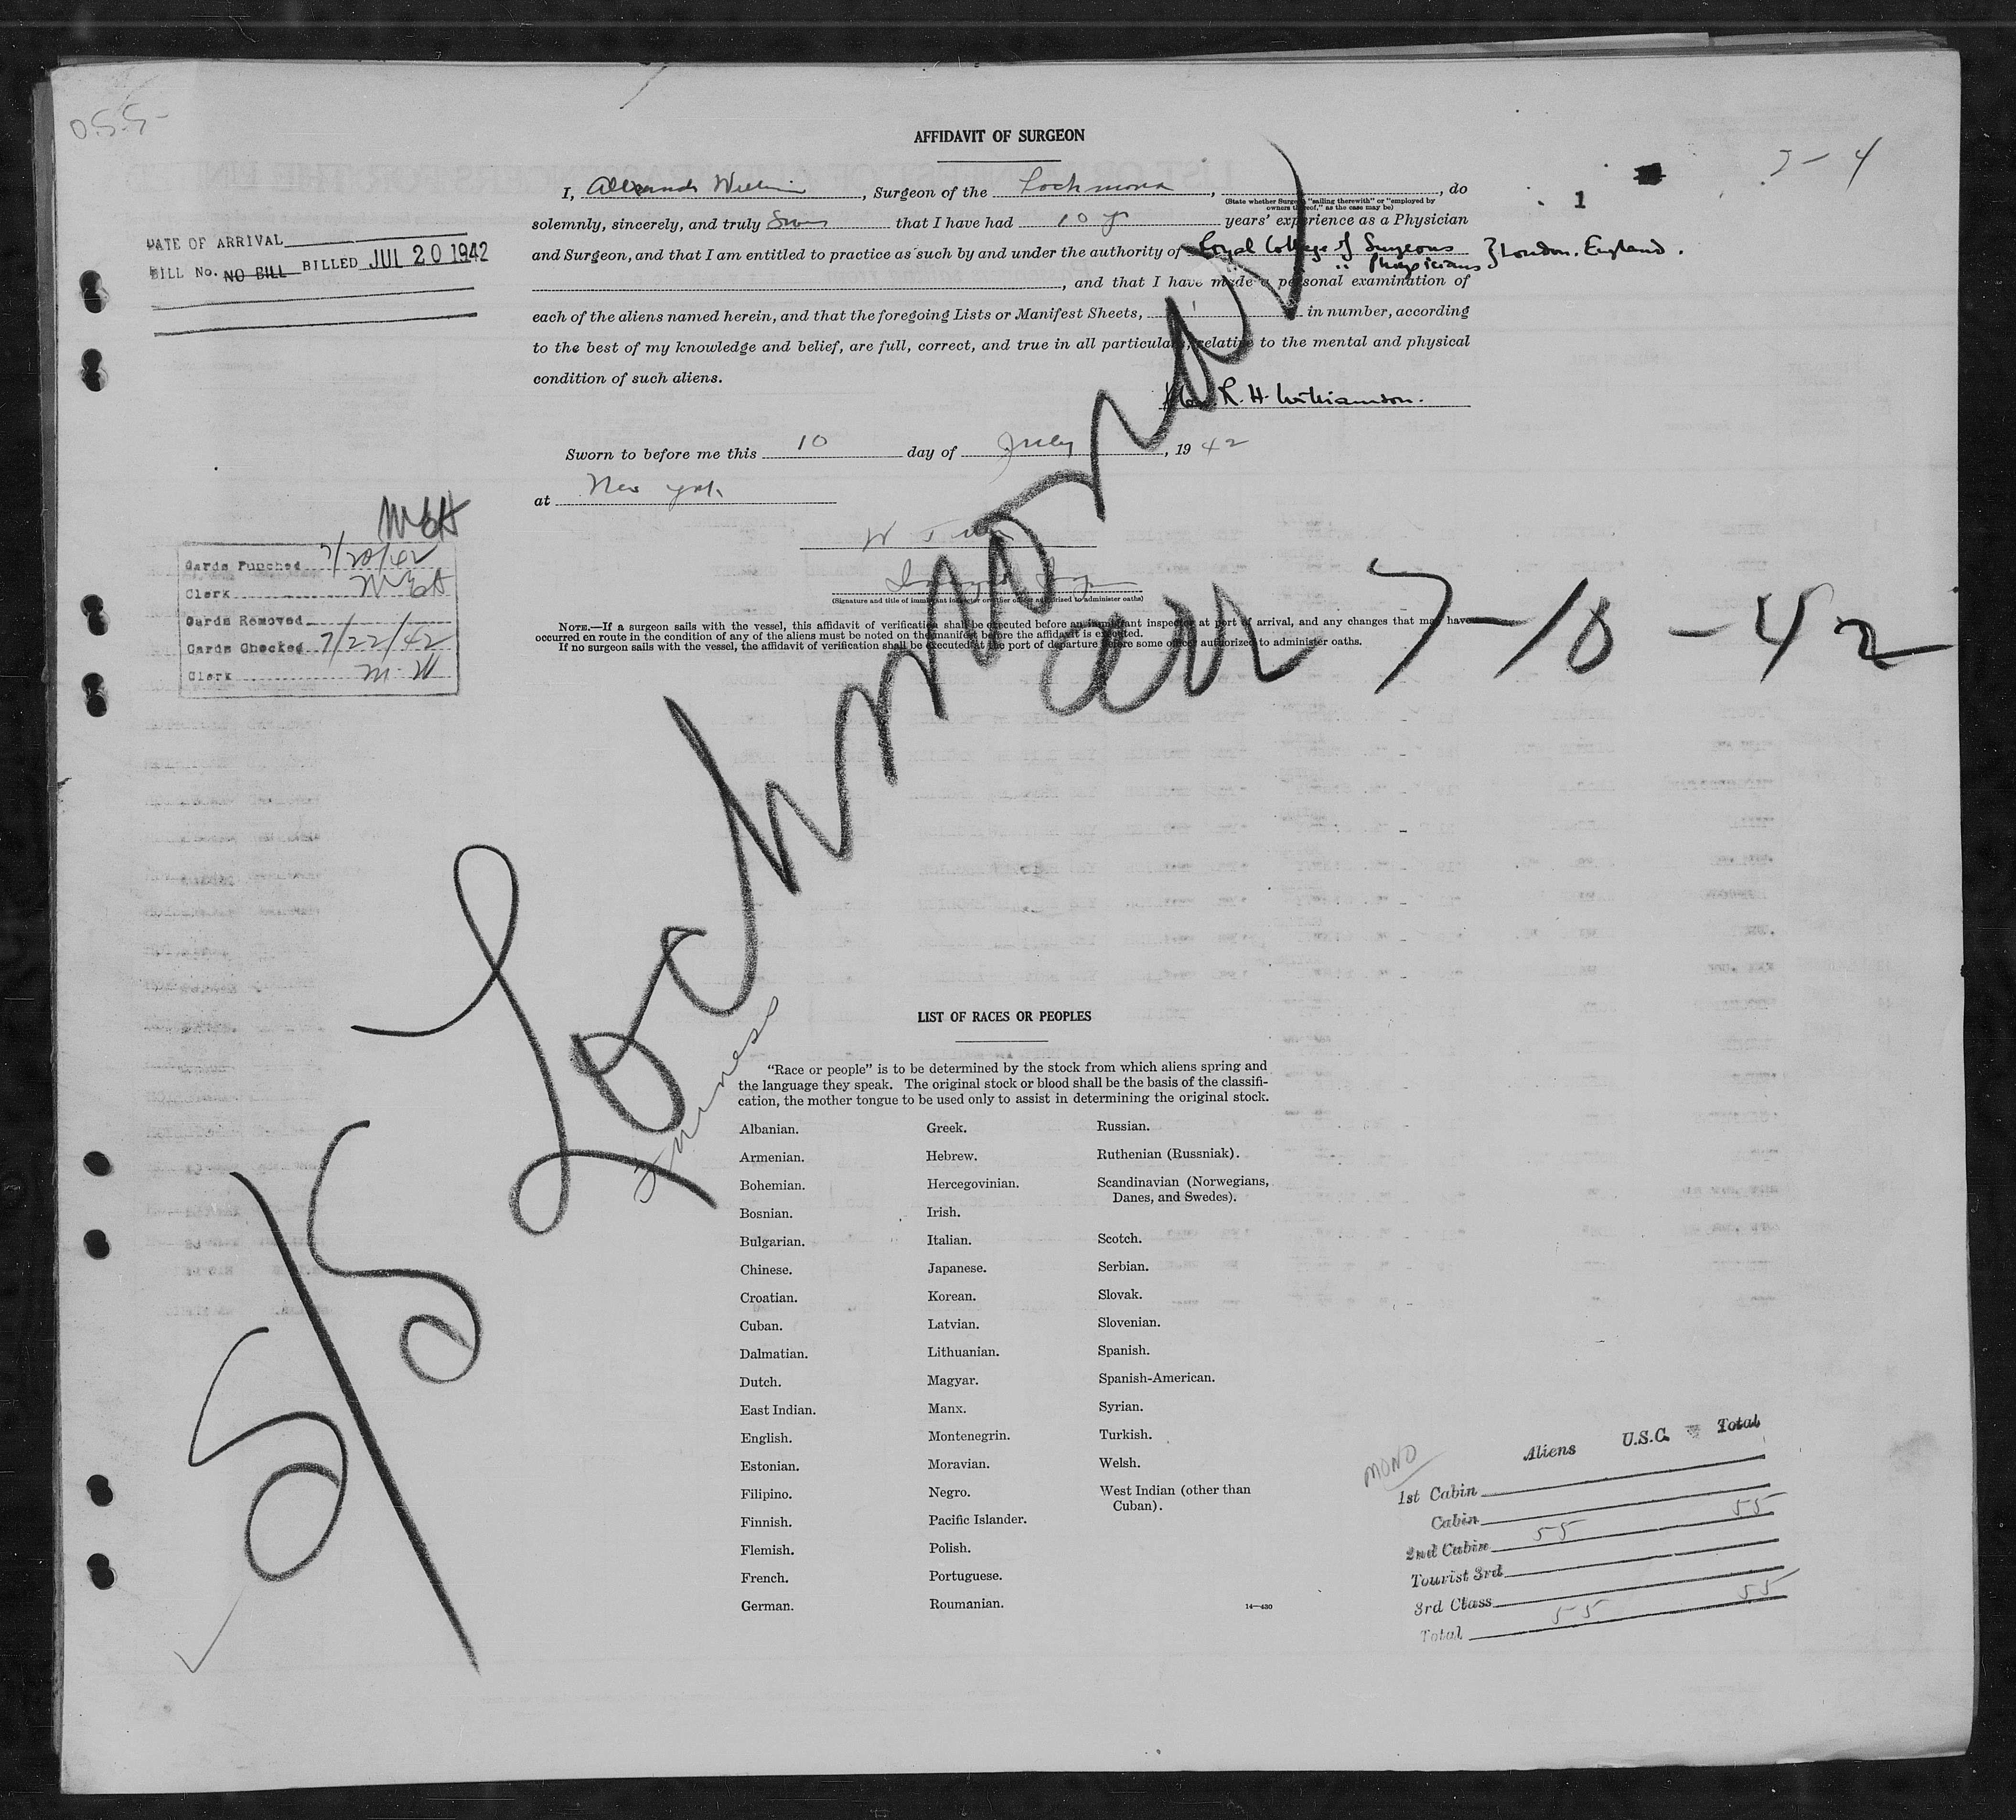 O.S.S-
AFFIDAVIT OF SURGEON
I, , Surgeon of the Lochmona, , do
(State whether Surgeon "sailing therewith" or "employed by
owners thereof," as the case may be)
7 - 4
1
solemnly, sincerely, and truly that I have had 10 years' experience as a Physician
and Surgeon, and that I am entitled to practice as such by and under the authority of Royal College of Surgeons
" Physicians } London. England.
, and that I have made a personal examination of
each of the aliens named herein, and that the foregoing Lists or Manifest Sheets, in number, according
to the best of my knowledge and belief, are full, correct, and true in all particulars, relative to the mental and physical
condition of such aliens.
R. H. Williamson.
Sworn to before me this 10 day of July, 1942
at New York
(Signature and title of immigrant inspector or other officer authorized to administer oaths)
NOTE.—If a surgeon sails with the vessel, this affidavit of verification shall be executed before an immigrant inspector at port of arrival, and any changes that may have
occurred en route in the condition of any of the aliens must be noted on the manifest before the affidavit is executed.
If no surgeon sails with the vessel, the affidavit of verification shall be executed at the port of departure before some officer authorized to administer oaths.
DATE OF ARRIVAL
BILL No. NO BILL BILLED JUL 20 1942
MEH
Cards Punched 7/20/42
Clerk MEH
Cards Removed
Cards Checked 7/22/42
Clerk M. W
S/S Lochmonar
arr 7-18-42
LIST OF RACES OR PEOPLES
"Race or people" is to be determined by the stock from which aliens spring and
the language they speak. The original stock or blood shall be the basis of the classifi-
cation, the mother tongue to be used only to assist in determining the original stock.
Albanian. Greek. Russian.
Armenian. Hebrew. Ruthenian (Russniak).
Bohemian. Hercegovinian. Scandinavian (Norwegians,
Danes, and Swedes).
Bosnian. Irish.
Bulgarian. Italian. Scotch.
Chinese. Japanese. Serbian.
Croatian. Korean. Slovak.
Cuban. Latvian. Slovenian.
Dalmatian. Lithuanian. Spanish.
Dutch. Magyar. Spanish-American.
East Indian. Manx. Syrian.
English. Montenegrin. Turkish.
Estonian. Moravian. Welsh.
Filipino. Negro. West Indian (other than
Cuban).
Finnish. Pacific Islander.
Flemish. Polish.
French. Portuguese.
German. Roumanian.
14—430
MONO
Aliens U.S.C. Total
1st Cabin
Cabin
2nd Cabin 55 55
Tourist 3rd
3rd Class
Total 55 55